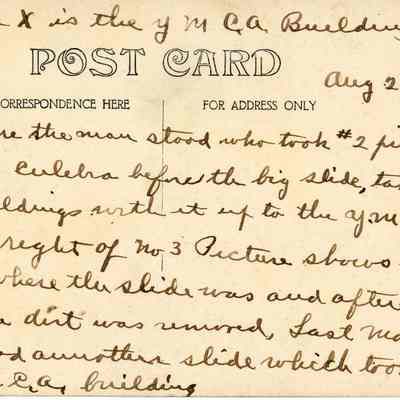 X is the Y M C.A. Building
POST CARD
Aug 2
CORRESPONDENCE HERE
FOR ADDRESS ONLY
the man stood who took #2 pi
Culebra before the big slide, ta
ldings with it up to the Y.M
right of No 3 Picture shows
where the slide was and after
dirt was removed, Last Ma
annother slide which too
C.A. building